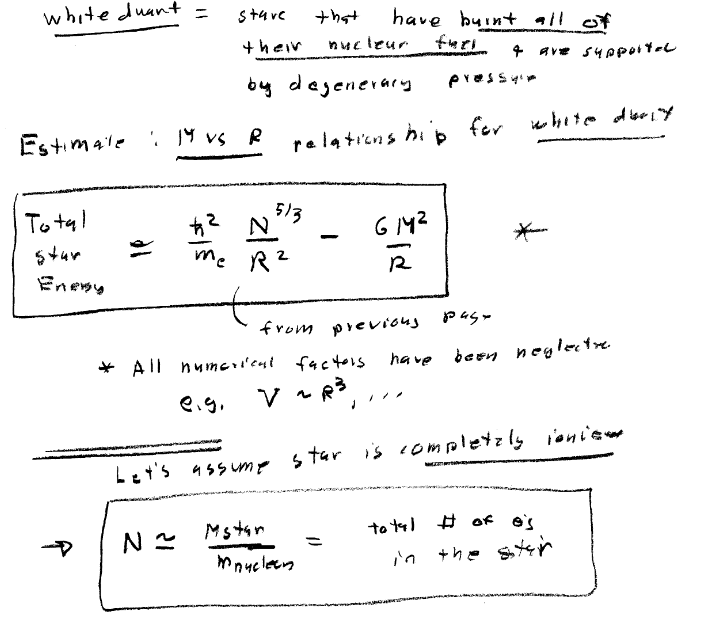 white dwarf = stars that have burnt all of
their nuclear fuel & are supported
by degeneracy pressure
Estimate : M vs R relationship for white dwarf
Total star Energy ≃ ħ²/mₑ N^5/3/R² − GM²/R *
from previous page
* All numerical factors have been neglected
e.g. V ~ R³, ...
Let's assume star is completely ionized
→ N ≃ Mstar/mnucleon = total # of e's in the star